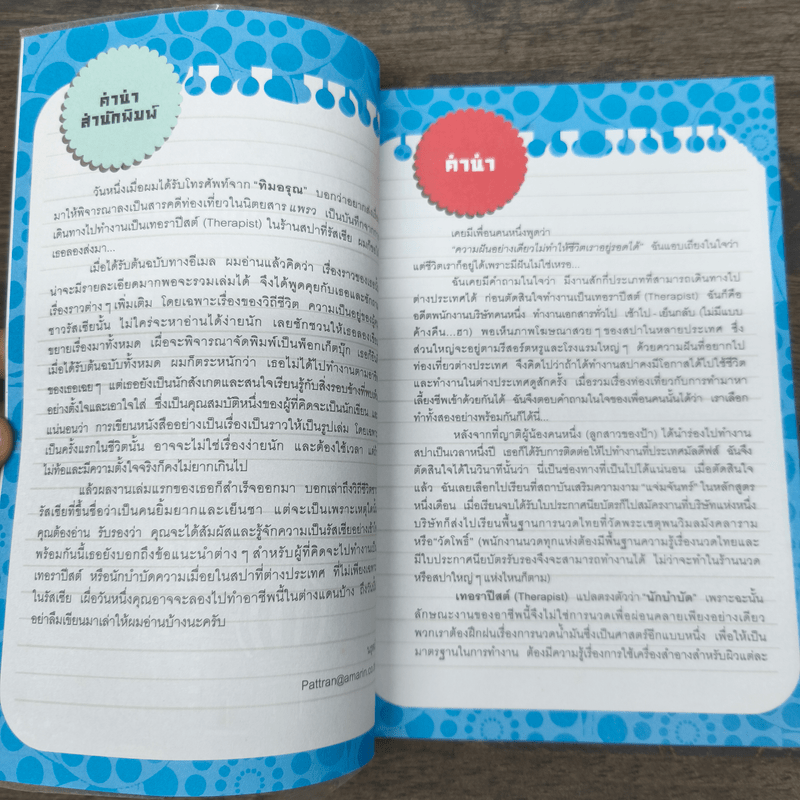 คำนำ
สำนักพิมพ์
วันหนึ่งเมื่อผมได้รับโทรศัพท์จาก "ทิมอรุณ" บอกว่าอยากส่ง
มาให้พิจารณาลงเป็นสารคดีท่องเที่ยวในนิตยสาร แพรว เป็นบันทึกจาก
เดินทางไปทำงานเป็นเทอราปีสต์ (Therapist) ในร้านสปาที่รัสเซีย ผมก็
เธอลองส่งมา...
เมื่อได้รับต้นฉบับทางอีเมล ผมอ่านแล้วคิดว่า เรื่องราวของเธอ
น่าจะมีรายละเอียดมากพอจะรวมเล่มได้ จึงได้พูดคุยกับเธอและซักถาม
เรื่องราวต่างๆ เพิ่มเติม โดยเฉพาะเรื่องของวิถีชีวิต ความเป็นอยู่ของ
ชาวรัสเซียนั้น ไม่ใคร่จะหาอ่านได้ง่ายนัก เลยชักชวนให้เธอลองเขียน
ขยายเรื่องมาทั้งหมด เผื่อจะพิจารณาจัดพิมพ์เป็นพ็อกเก็ตบุ๊ก
เมื่อได้รับต้นฉบับทั้งหมด ผมก็ตระหนักว่า เธอไม่ได้ไปทำงานตาม
ของเธอเฉยๆ แต่เธอยังเป็นนักสังเกตและสนใจเรียนรู้กับสิ่งรอบข้าง
อย่างตั้งใจและเอาใจใส่ ซึ่งเป็นคุณสมบัติหนึ่งของผู้ที่คิดจะเป็นนักเขียน
แน่นอนว่า การเขียนหนังสืออย่างเป็นเรื่องเป็นราวให้เป็นรูปเล่ม
เป็นครั้งแรกในชีวิตนั้น อาจจะไม่ใช่เรื่องง่ายนัก และต้องใช้เวลา
ไม่ท้อและมีความตั้งใจจริงก็คงไม่ยากเกินไป
แล้วผลงานเล่มแรกของเธอก็สำเร็จออกมา บอกเล่าถึงวิถีชีวิต
รัสเซียที่ขึ้นชื่อว่าเป็นคนยิ้มยากและเย็นชา แต่จะเป็นเพราะเหตุใด
คุณต้องอ่าน รับรองว่า คุณจะได้สัมผัสและรู้จักความเป็นรัสเซีย
พร้อมกันนี้เธอยังบอกถึงข้อแนะนำต่างๆ สำหรับผู้ที่คิดจะไปทำงาน
เทอราปีสต์ หรือนักบำบัดความเมื่อยในสปาที่ต่างประเทศ ที่ไม่เพียง
ในรัสเซีย เผื่อวันหนึ่งคุณอาจจะลองไปทำอาชีพนี้ในต่างแดนบ้าง
อย่าลืมเขียนมาเล่าให้ผมอ่านบ้างนะครับ
Pattran@amarin.co.
คำนำ
เคยมีเพื่อนคนหนึ่งพูดว่า
"ความฝันอย่างเดียวไม่ทำให้ชีวิตเราอยู่รอดได้" ฉันแอบเถียงในใจว่า
แต่ชีวิตเราก็อยู่ได้เพราะมีฝันไม่ใช่เหรอ...
ฉันเคยมีคำถามในใจว่า มีงานสักกี่ประเภทที่สามารถเดินทางไป
ต่างประเทศได้ ก่อนตัดสินใจทำงานเป็นเทอราปีสต์ (Therapist) ฉันก็คือ
อดีตพนักงานบริษัทคนหนึ่ง ทำงานเอกสารทั่วไป เช้าไป-เย็นกลับ (ไม่มีแบบ
ค้างคืน...ฮา) พอเห็นภาพโฆษณาสวยๆ ของสปาในหลายประเทศ ซึ่ง
ส่วนใหญ่จะอยู่ตามรีสอร์ตหรูและโรงแรมใหญ่ๆ ด้วยความฝันที่อยากไป
ท่องเที่ยวต่างประเทศ จึงคิดไปว่าถ้าได้ทำงานสปาคงมีโอกาสได้ไปใช้ชีวิต
และทำงานในต่างประเทศดูสักครั้ง เมื่อรวมเรื่องท่องเที่ยวกับการทำมาหา
เลี้ยงชีพเข้าด้วยกันได้ ฉันจึงตอบคำถามในใจของเพื่อนคนนั้นได้ว่า เราเลือก
ทำทั้งสองอย่างพร้อมกันก็ได้นี่...
หลังจากที่ญาติผู้น้องคนหนึ่ง (ลูกสาวของป้า) ได้นำร่องไปทำงาน
สปาเป็นเวลาหนึ่งปี เธอก็ได้รับการติดต่อให้ไปทำงานที่ประเทศมัลดีฟส์ ฉันจึง
ตัดสินใจได้ในวินาทีนั้นว่า นี่เป็นช่องทางที่เป็นไปได้แน่นอน เมื่อตัดสินใจ
แล้ว ฉันเลยเลือกไปเรียนที่สถาบันเสริมความงาม "แจ่มจันทร์" ในหลักสูตร
หนึ่งเดือน เมื่อเรียนจบได้รับใบประกาศนียบัตรก็ไปสมัครงานที่บริษัทแห่งหนึ่ง
บริษัทก็ส่งไปเรียนพื้นฐานการนวดไทยที่วัดพระเชตุพนวิมลมังคลาราม
หรือ"วัดโพธิ์" (พนักงานนวดทุกแห่งต้องมีพื้นฐานความรู้เรื่องนวดไทยและ
มีใบประกาศนียบัตรรับรองจึงจะสามารถทำงานได้ ไม่ว่าจะทำในร้านนวด
หรือสปาใหญ่ๆ แห่งไหนก็ตาม)
เทอราปีสต์ (Therapist) แปลตรงตัวว่า "นักบำบัด" เพราะฉะนั้น
ลักษณะงานของอาชีพนี้จึงไม่ใช่การนวดเพื่อผ่อนคลายเพียงอย่างเดียว
พวกเราต้องฝึกฝนเรื่องการนวดน้ำมันซึ่งเป็นศาสตร์อีกแบบหนึ่ง เพื่อให้เป็น
มาตรฐานในการทำงาน ต้องมีความรู้เรื่องการใช้เครื่องสำอางสำหรับผิวแต่ละ